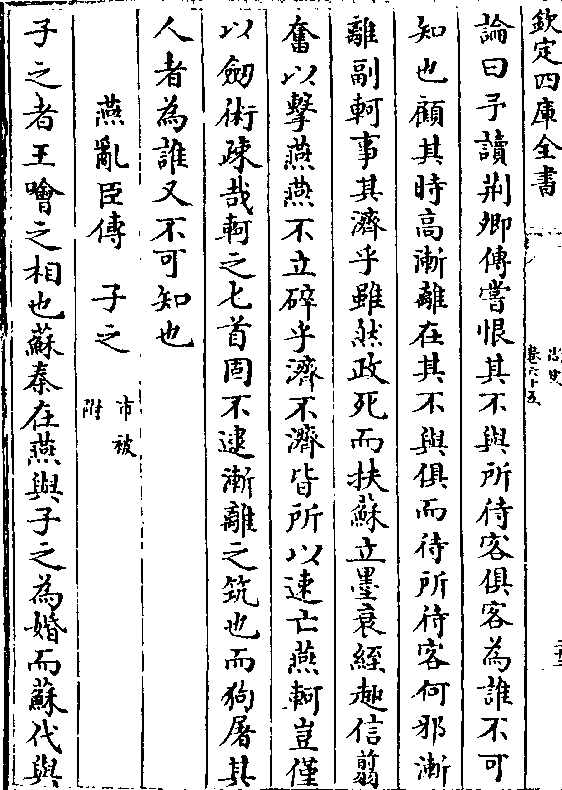 欽定四庫全書
尚史
卷六十五
論曰予讀荆卿傳嘗恨其不與所待客俱客為誰不可
知也顧其時高漸離在其不與俱而待所待客何邪漸
離副軻事其濟乎雖然政死而扶蘇立墨衰絰趣信翦
奮以擊燕燕不立碎乎濟不濟皆所以速亡燕軻豈僅
以劒術疎哉軻之匕首固不逮漸離之筑也而狗屠其
人者為誰又不可知也
燕亂臣傳　子之
市被
附
子之者王噲之相也蘇秦在燕與子之為婚而蘇代與